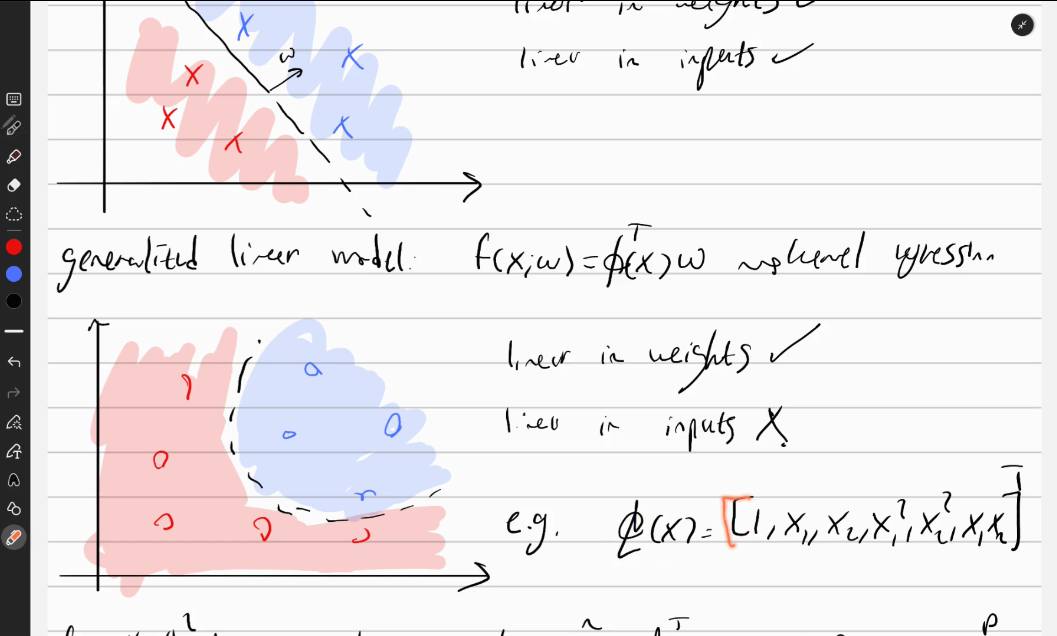 linear in weights ✓
w
linear in inputs ✓
generalized linear model: f(x;w)=ϕ(x)ᵀw ⇝ kernel regression
linear in weights ✓
linear in inputs X
e.g. ϕ(x)=[1, x₁, x₂, x₁², x₂², x₁x₂]ᵀ